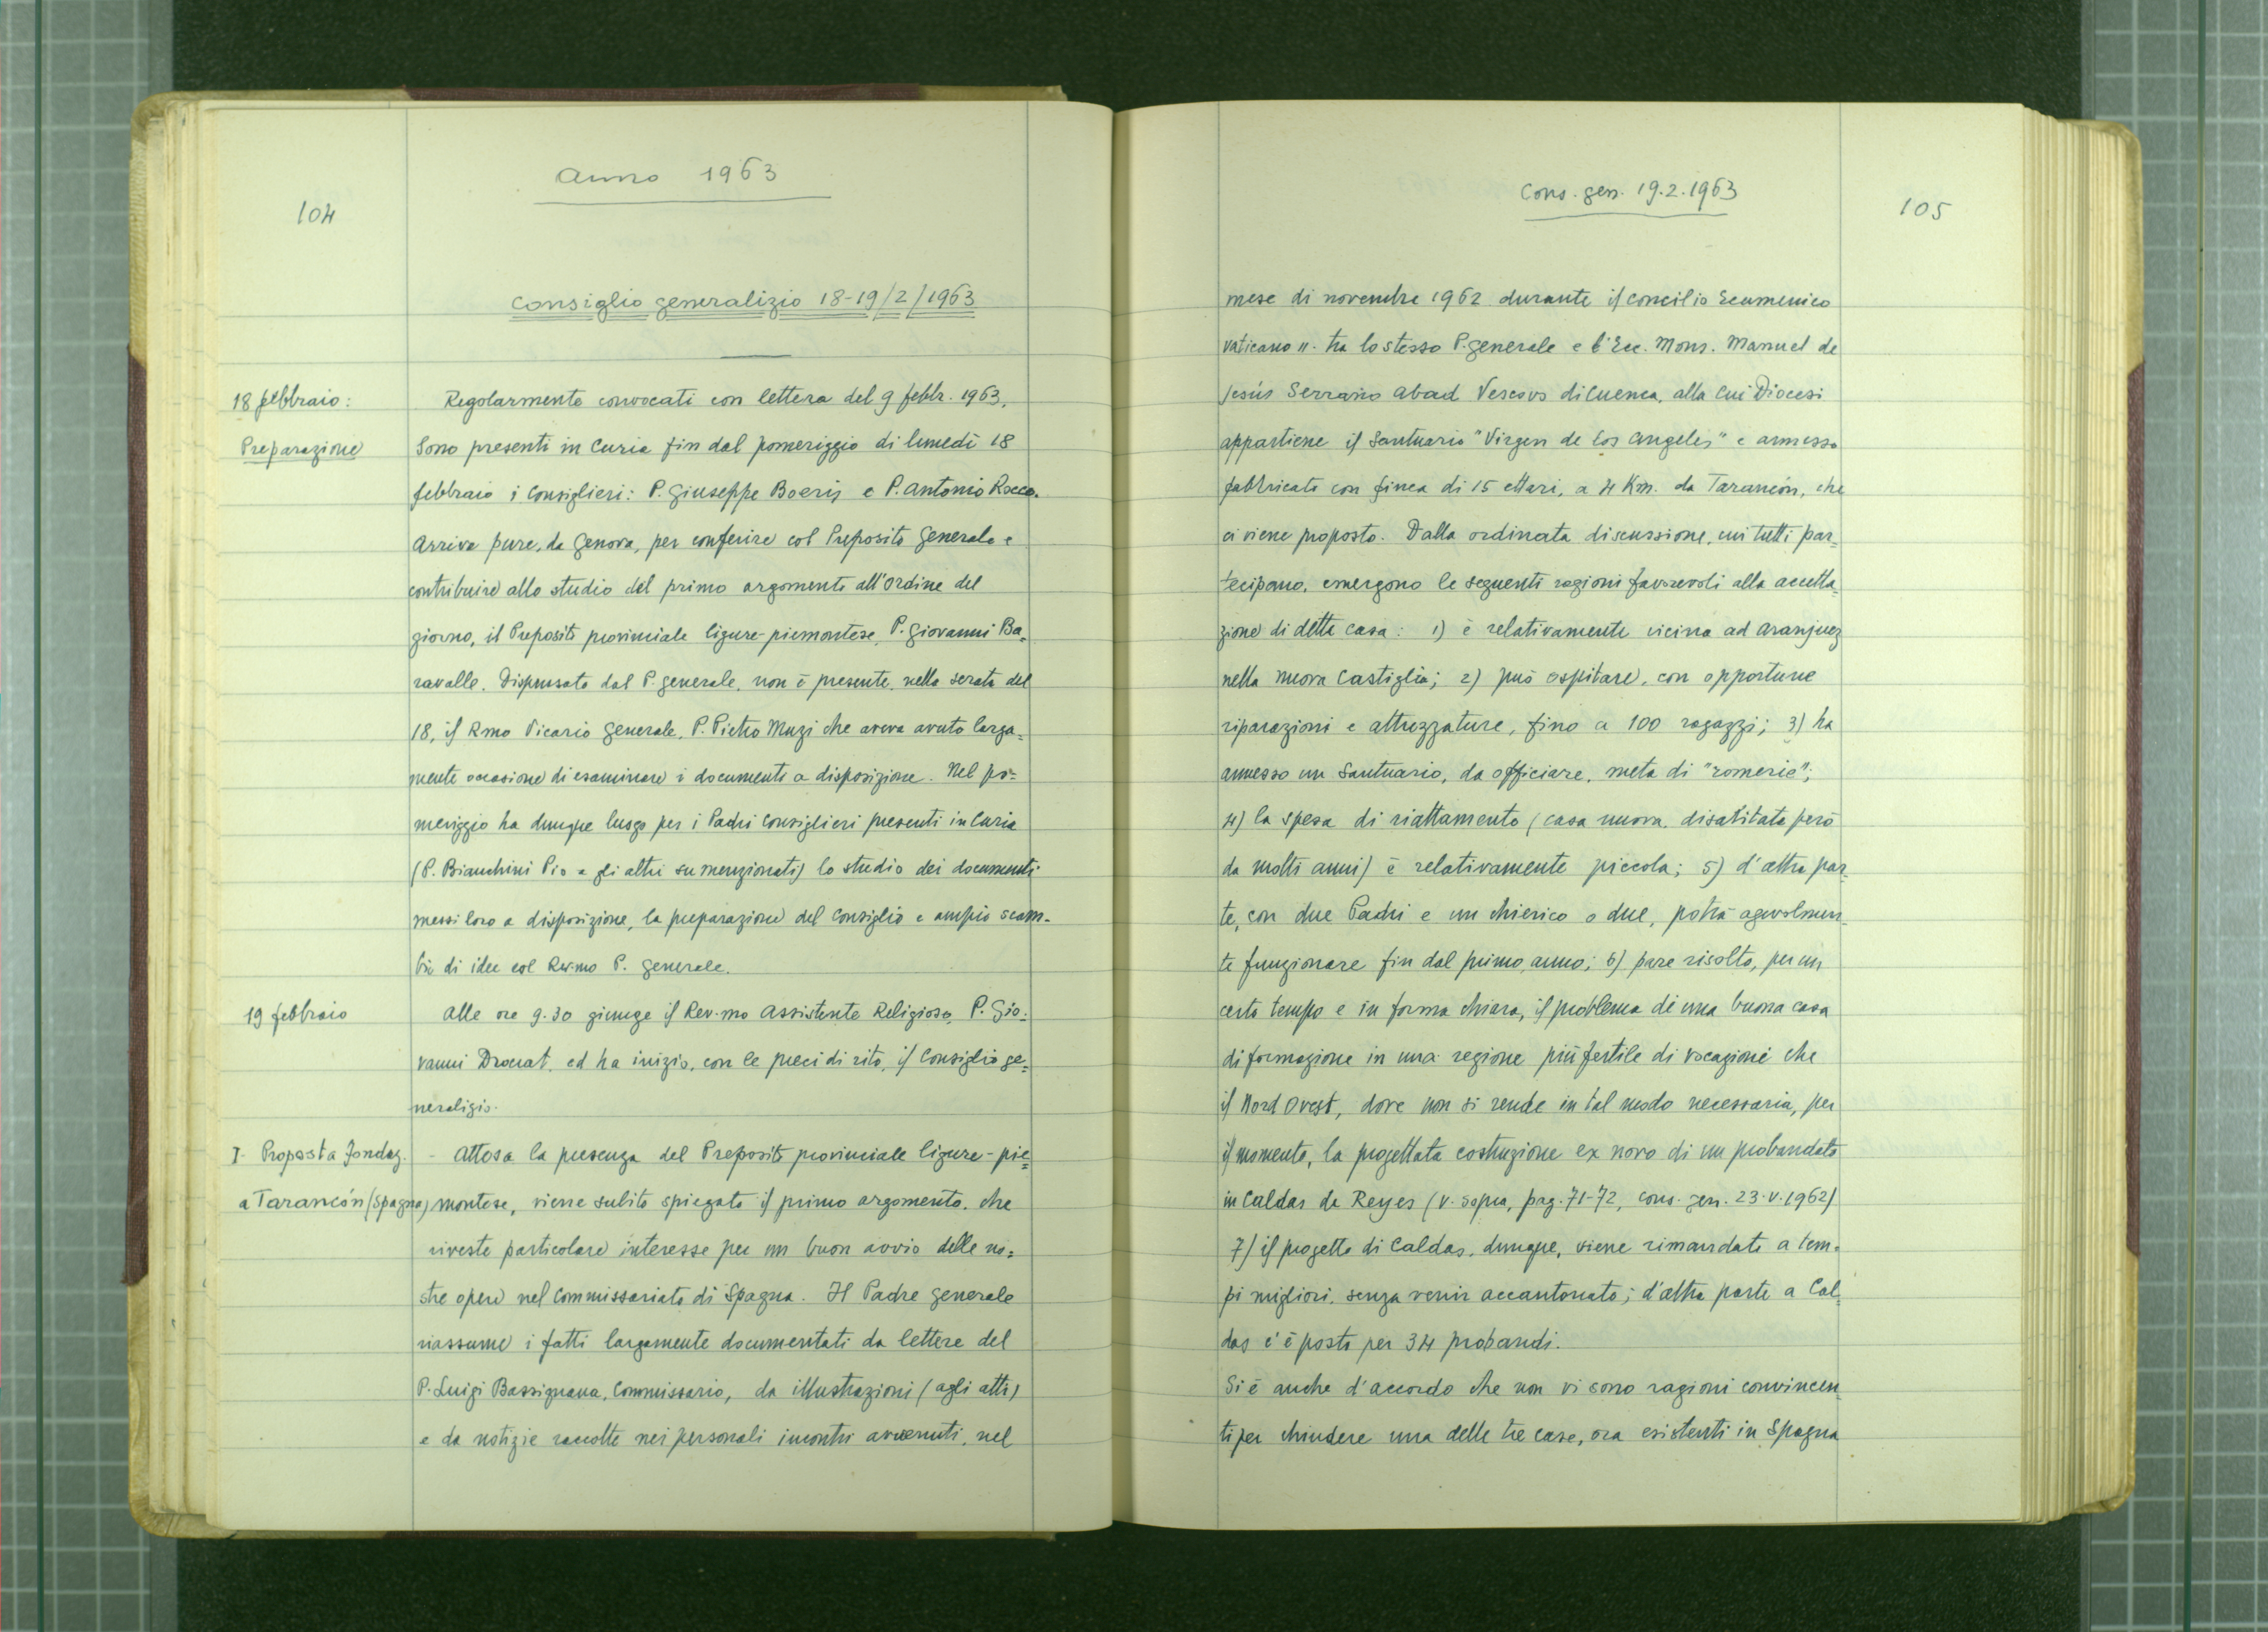 104
Anno 1963
Consiglio generalizio 18-19/2/1963
18 febbraio:
Preparazione
Regolarmente convocati con lettera del 9 febbr. 1963,
sono presenti in Curia fin dal pomeriggio di lunedì 18
febbraio i Consiglieri: P. Giuseppe Boeris e P. Antonio Rocco.
Arriva pure, da Genova, per conferire col Preposito Generale e
contribuire allo studio del primo argomento all'ordine del
giorno, il Preposito provinciale ligure-piemontese, P. Giovanni Ba=
ravalle. Dispensato dal P. generale, non è presente, nella serata del
18, il Rmo Vicario Generale, P. Pietro Muzi che aveva avuto larga=
mente occasione di esaminare i documenti a disposizione. Nel po=
meriggio ha dunque luogo per i Padri Consiglieri presenti in Curia
(P. Bianchini Pio e gli altri su menzionati) lo studio dei documenti
messi loro a disposizione, la preparazione del Consiglio e ampio scam-
bio di idee col Rev.mo P. Generale.
19 febbraio
Alle ore 9.30 giunge il Rev.mo Assistente Religioso, P. Gio=
vanni Drouat, ed ha inizio, con le preci di rito, il Consiglio ge=
neralizio.
I- Proposta Fondaz.
a Tarancón (Spagna)
- Attesa la presenza del Preposito provinciale ligure-pie=
montese, viene subito spiegato il primo argomento, che
riveste particolare interesse per un buon avvio delle no=
stre opere nel Commissariato di Spagna. Il Padre generale
riassume i fatti largamente documentati da lettere del
P. Luigi Bassignana, Commissario, da illustrazioni (agli atti)
e da notizie raccolte nei personali incontri avvenuti, nel
Cons. gen. 19.2.1963
105
mese di novembre 1962 durante il Concilio Ecumenico
Vaticano II. tra lo stesso P. generale e l'Ecc. Mons. Manuel de
Jesús Serrano Abad Vescovo di Cuenca, alla cui Diocesi
appartiene il Santuario "Virgen de Los Angeles" e annesso
fabbricato con finca di 15 ettari, a 4 Km. da Tarancón, che
ci viene proposto. Dalla ordinata discussione, cui tutti par=
tecipano, emergono le seguenti ragioni favorevoli alla accetta=
zione di detta casa: 1) è relativamente vicina ad Aranjuez
nella nuova Castiglia; 2) può ospitare, con opportune
riparazioni e attrezzature, fino a 100 ragazzi; 3) ha
annesso un Santuario, da officiare, meta di "romerie";
4) la spesa di riattamento (casa nuova, disabitata però
da molti anni) è relativamente piccola; 5) d'altra par=
te, con due Padri e un chierico o due, potrà agevolmen=
te funzionare fin dal primo anno; 6) pare risolto, per un
certo tempo e in forma chiara, il problema di una buona casa
di formazione in una regione più fertile di vocazioni che
il Nord Ovest, dove non si rende in tal modo necessaria, per
il momento, la progettata costruzione ex novo di un probandato
in Caldas de Reyes (v. sopra, pag. 71-72, cons. gen. 23.V.1962)
7) il progetto di Caldas, dunque, viene rimandato a tem=
pi migliori, senza venir accantonato; d'altra parte a Cal=
das c'è posto per 34 probandi.
Si è anche d'accordo che non vi sono ragioni convincen=
ti per chiudere una delle tre case, ora esistenti in Spagna